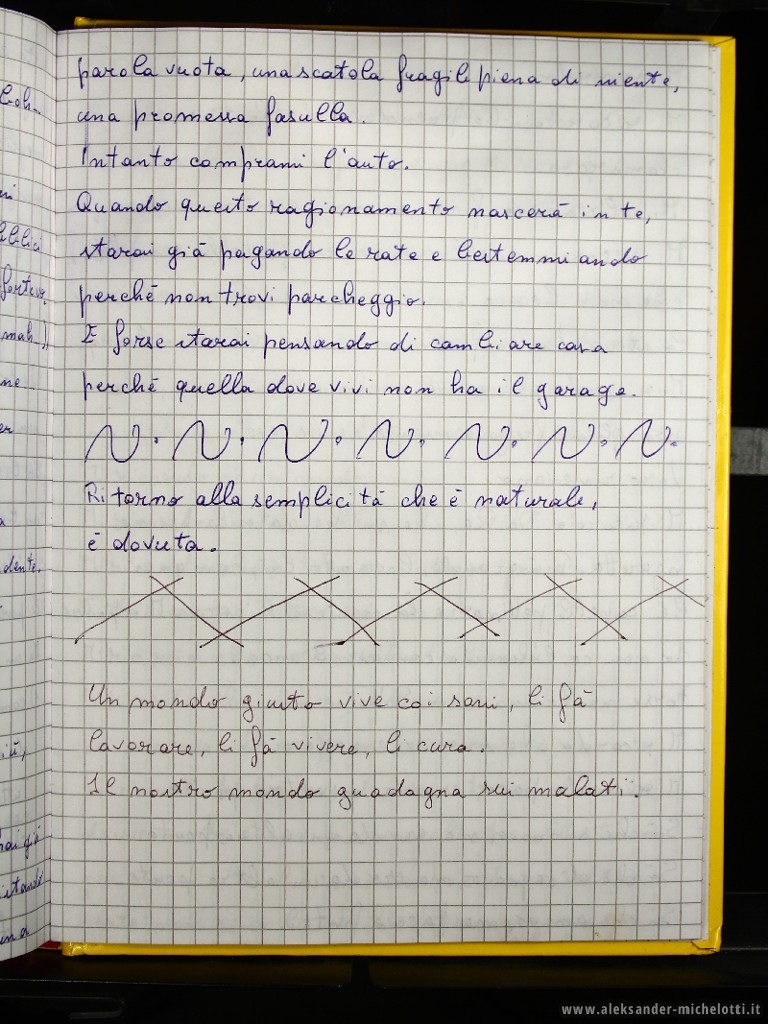 parola vuota, una scatola fragile piena di niente,
una promessa fasulla.
Intanto comprami l'auto.
Quando questo ragionamento nascerà in te,
starai già pagando le rate e bestemmiando
perché non trovi parcheggio.
E forse starai pensando di cambiare casa
perché quella dove vivi non ha il garage.
Ritorno alla semplicità che è naturale,
è dovuta.
Un mondo giusto vive coi sani, li fà
lavorare, li fà vivere, li cura.
Il nostro mondo guadagna sui malati.
www.aleksander-michelotti.it